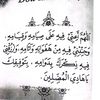 اللهم اعني فيه على صيامه وقيامه
وجنبني فيه من هفواته واثامه وارزقني
فيه ذكرك بدوامه بتوفيقك
يا هادي المضلين